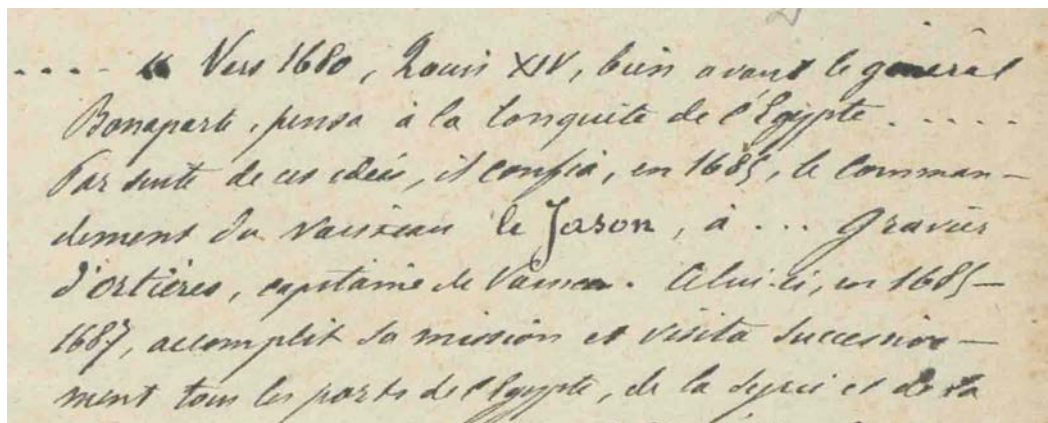 .... « Vers 1680, Louis XIV, bien avant le général
Bonaparte, pensa à la Conquête de l'Egypte.....
Par suite de ces idées, il confia, en 1685, le Comman-
dement du Vaisseau le Jason, à ... Gravier
d'Ortières, capitaine de Vaisseau. Celui-ci, en 1685-
1687, accomplit sa mission et visita successive-
ment tous les ports de l'Egypte, de la Syrie et de la